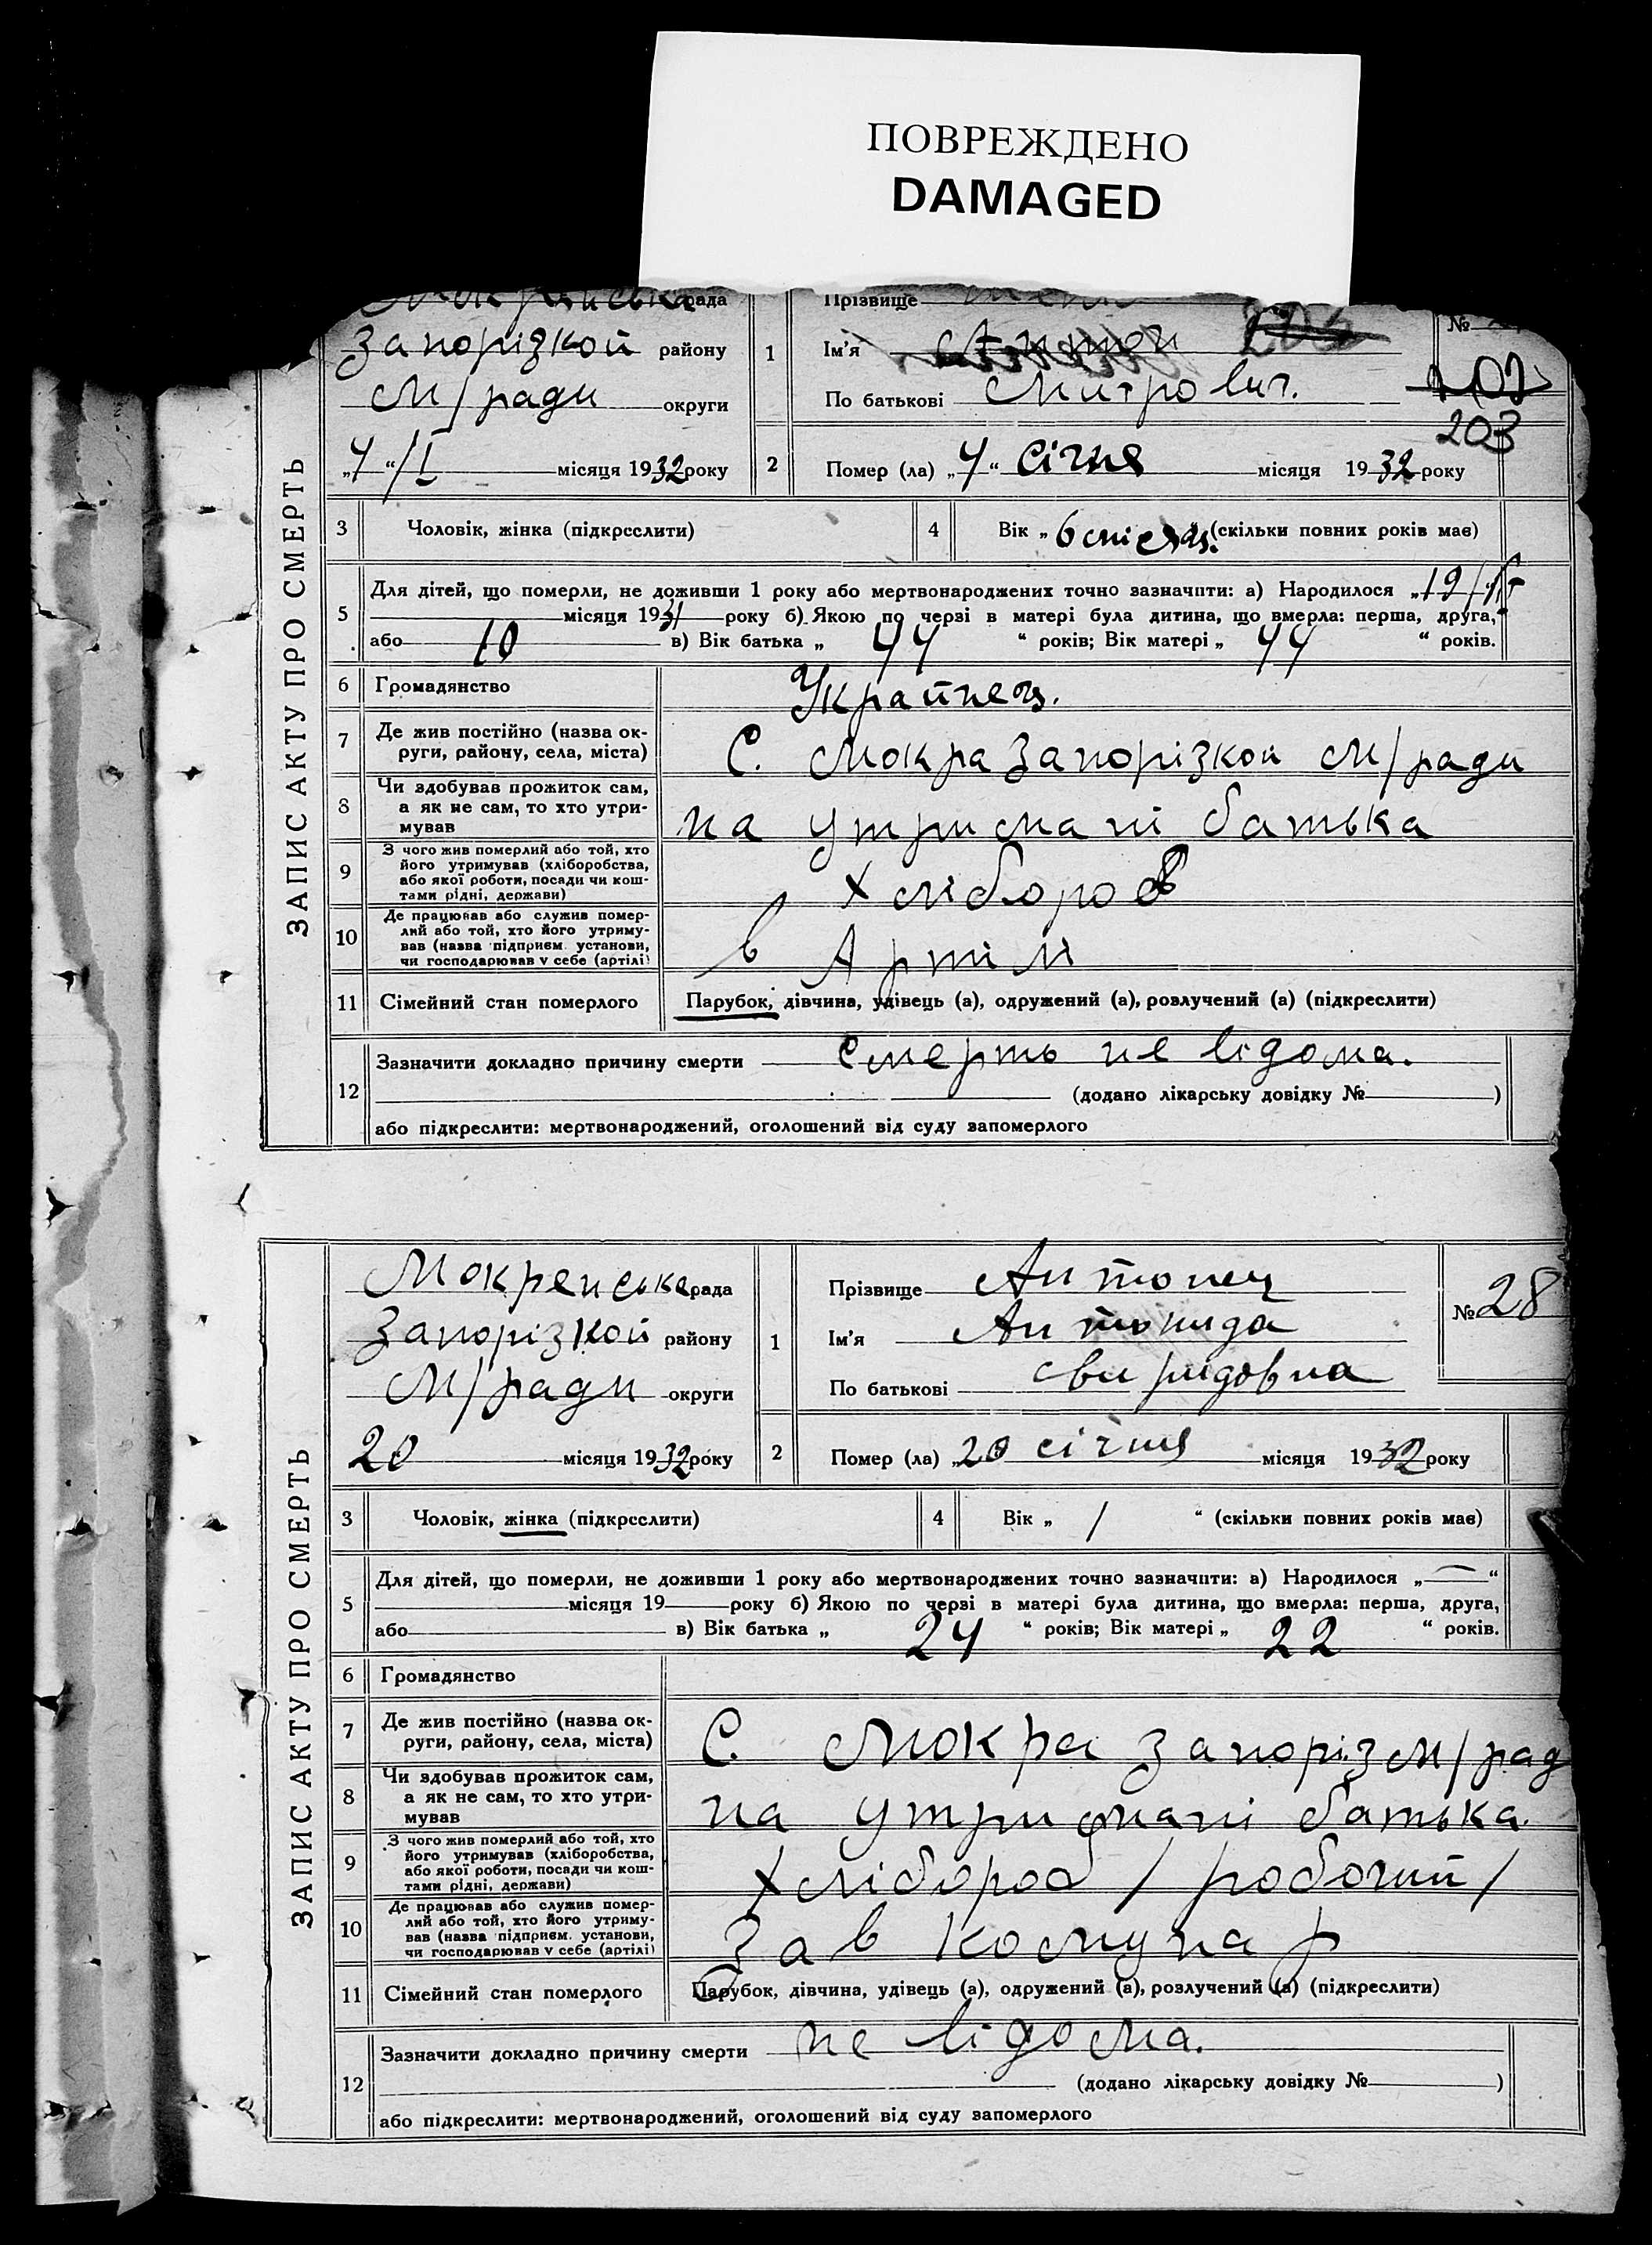 ПОВРЕЖДЕНО
DAMAGED
рада
Прізвище
№
Запорізкой району
1
Ім'я Антон
М/ради округи
По батькові Митрович.
203
„4“/I місяця 1932 року
2
Помер (ла) „4“ січня місяця 1932 року
ЗАПИС АКТУ ПРО СМЕРТЬ
3 Чоловік, жінка (підкреслити)
4 Вік „6 місяц. (скільки повних років має)
5 Для дітей, що померли, не доживши 1 року або мертвонароджених точно зазначити: а) Народилося „19
місяця 1931 року б) Якою по черзі в матері була дитина, що вмерла: перша, друга,
або 10 в) Вік батька „ 44 “ років; Вік матері „ 44 “ років.
6 Громадянство Украинец.
7 Де жив постійно (назва ок-
руги, району, села, міста) С. Мокра Запорізкой М/ради
8 Чи здобував прожиток сам,
а як не сам, то хто утри-
мував на утримані батька
9 З чого жив померлий або той, хто
його утримував (хліборобства,
або якої роботи, посади чи кош-
тами рідні, держави) Хлібороб
10 Де працював або служив помер-
лий або той, хто його утриму-
вав (назва підприєм. установи,
чи господарював у себе (артілі) в Артіли
11 Сімейний стан померлого Парубок, дівчина, удівець (а), одружений (а), розлучений (а) (підкреслити)
12 Зазначити докладно причину смерти Смерть не відома.
(додано лікарську довідку № )
або підкреслити: мертвонароджений, оголошений від суду запомерлого
Мокренська рада
1
Прізвище Антонец
№ 28
Запорізкой району
Ім'я Антонида
М/ради округи
По батькові Свиридовна
20 місяця 1932 року
2
Помер (ла) „20 січня місяця 1932 року
ЗАПИС АКТУ ПРО СМЕРТЬ
3 Чоловік, жінка (підкреслити)
4 Вік „ 1 “ (скільки повних років має)
5 Для дітей, що померли, не доживши 1 року або мертвонароджених точно зазначити: а) Народилося „—“
місяця 19 року б) Якою по черзі в матері була дитина, що вмерла: перша, друга,
або в) Вік батька „ 24 “ років; Вік матері „ 22 “ років.
6 Громадянство
7 Де жив постійно (назва ок-
руги, району, села, міста) С. Мокра Запоріз М/рад
8 Чи здобував прожиток сам,
а як не сам, то хто утри-
мував на утримані батька.
9 З чого жив померлий або той, хто
його утримував (хліборобства,
або якої роботи, посади чи кош-
тами рідні, держави) Хлібороб / робочий /
10 Де працював або служив помер-
лий або той, хто його утриму-
вав (назва підприєм. установи,
чи господарював у себе (артілі) Зав Комунар
11 Сімейний стан померлого Парубок, дівчина, удівець (а), одружений (а), розлучений (а) (підкреслити)
12 Зазначити докладно причину смерти не відома.
(додано лікарську довідку № )
або підкреслити: мертвонароджений, оголошений від суду запомерлого